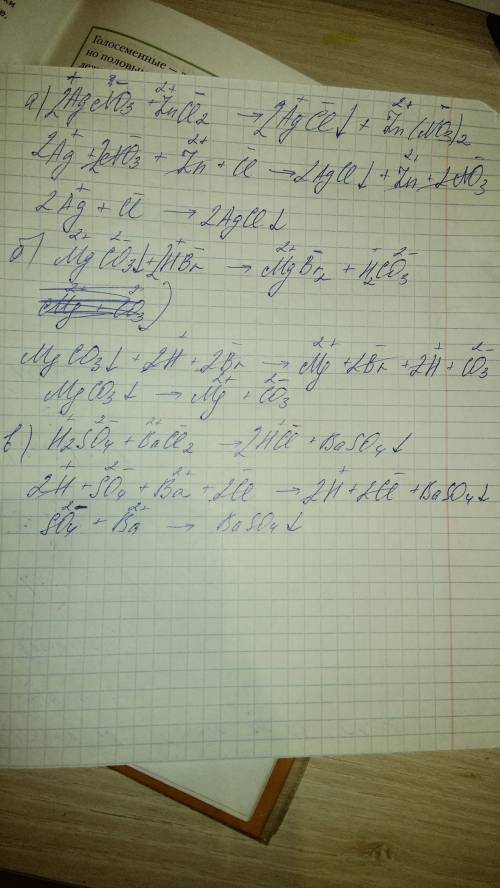 Голосеменные –
но половы
а) 2Ag⁺NO₃⁻ + Zn²⁺Cl₂⁻ → 2Ag⁺Cl⁻↓ + Zn²⁺(NO₃)₂⁻
2Ag⁺ + 2NO₃⁻ + Zn²⁺ + Cl⁻ → 2AgCl↓ + Zn²⁺ + 2NO₃⁻
2Ag⁺ + Cl⁻ → 2AgCl↓
б) Mg²⁺CO₃²⁻↓ + 2H⁺Br⁻ → Mg²⁺Br₂⁻ + H₂⁺CO₃²⁻
MgCO₃↓ + 2H⁺ + 2Br⁻ → Mg²⁺ + 2Br⁻ + 2H⁺ + CO₃²⁻
MgCO₃↓ → Mg²⁺ + CO₃²⁻
в) H₂⁺SO₄²⁻ + Ba²⁺Cl₂⁻ → 2H⁺Cl⁻ + BaSO₄↓
2H⁺ + SO₄²⁻ + Ba²⁺ + 2Cl⁻ → 2H⁺ + 2Cl⁻ + BaSO₄↓
SO₄²⁻ + Ba²⁺ → BaSO₄↓